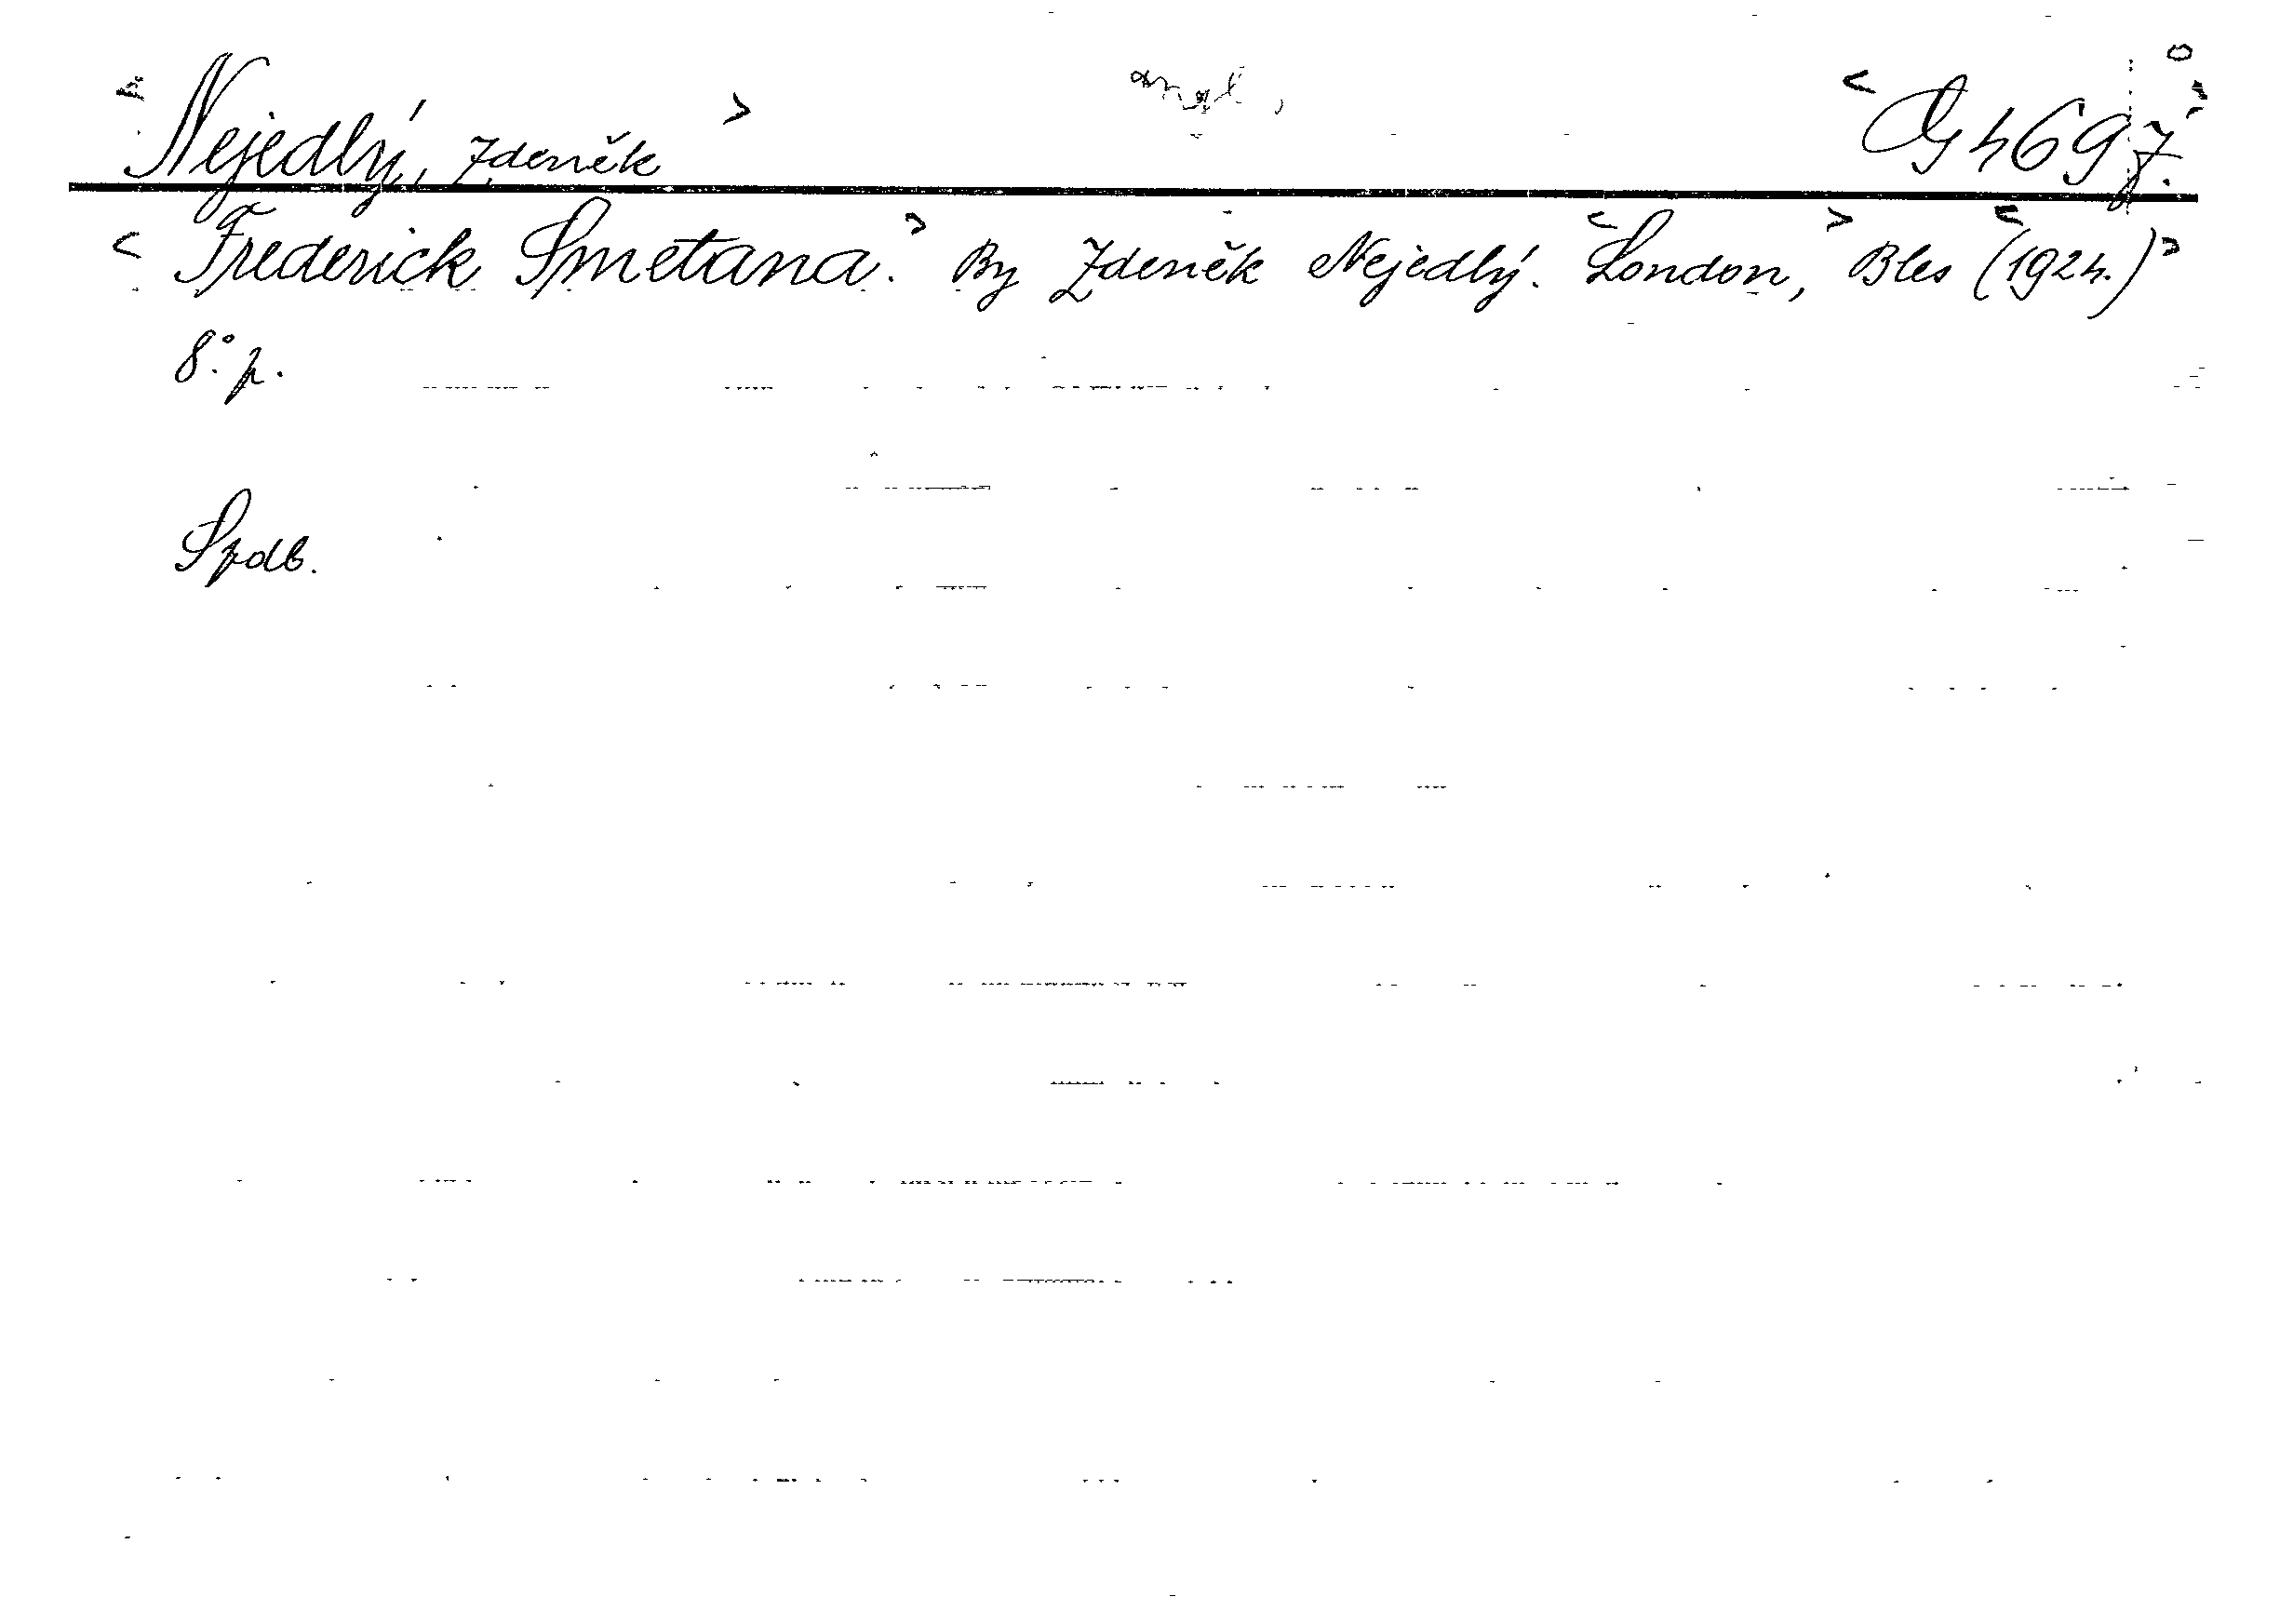 < Nejedlý, Zdeněk > angl. < G 4697. >
< Frederick Smetana. > By Zdeněk Nejedlý. < London, > Bles < (1924.) >
8°. p.
Spdb.